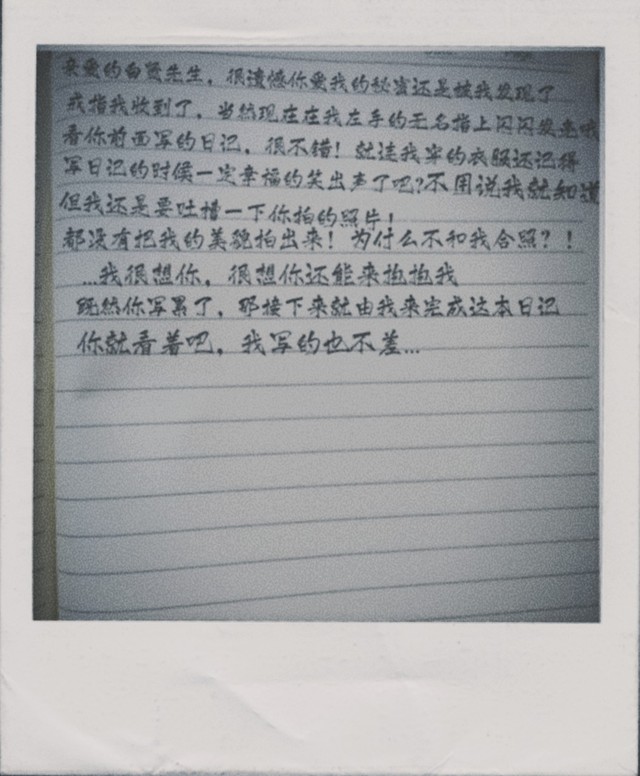 亲爱的白贤先生，很遗憾你爱我的秘密还是被我发现了
戒指我收到了，当然现在在我左手的无名指上闪闪发光哦
看你前面写的日记，很不错！就连我穿的衣服还记得
写日记的时候一定幸福的笑出声了吧?不用说我就知道
但我还是要吐槽一下你拍的照片！
都没有把我的美貌拍出来！为什么不和我合照？！
...我很想你，很想你还能来抱抱我
既然你写累了，那接下来就由我来完成这本日记
你就看着吧，我写的也不差...